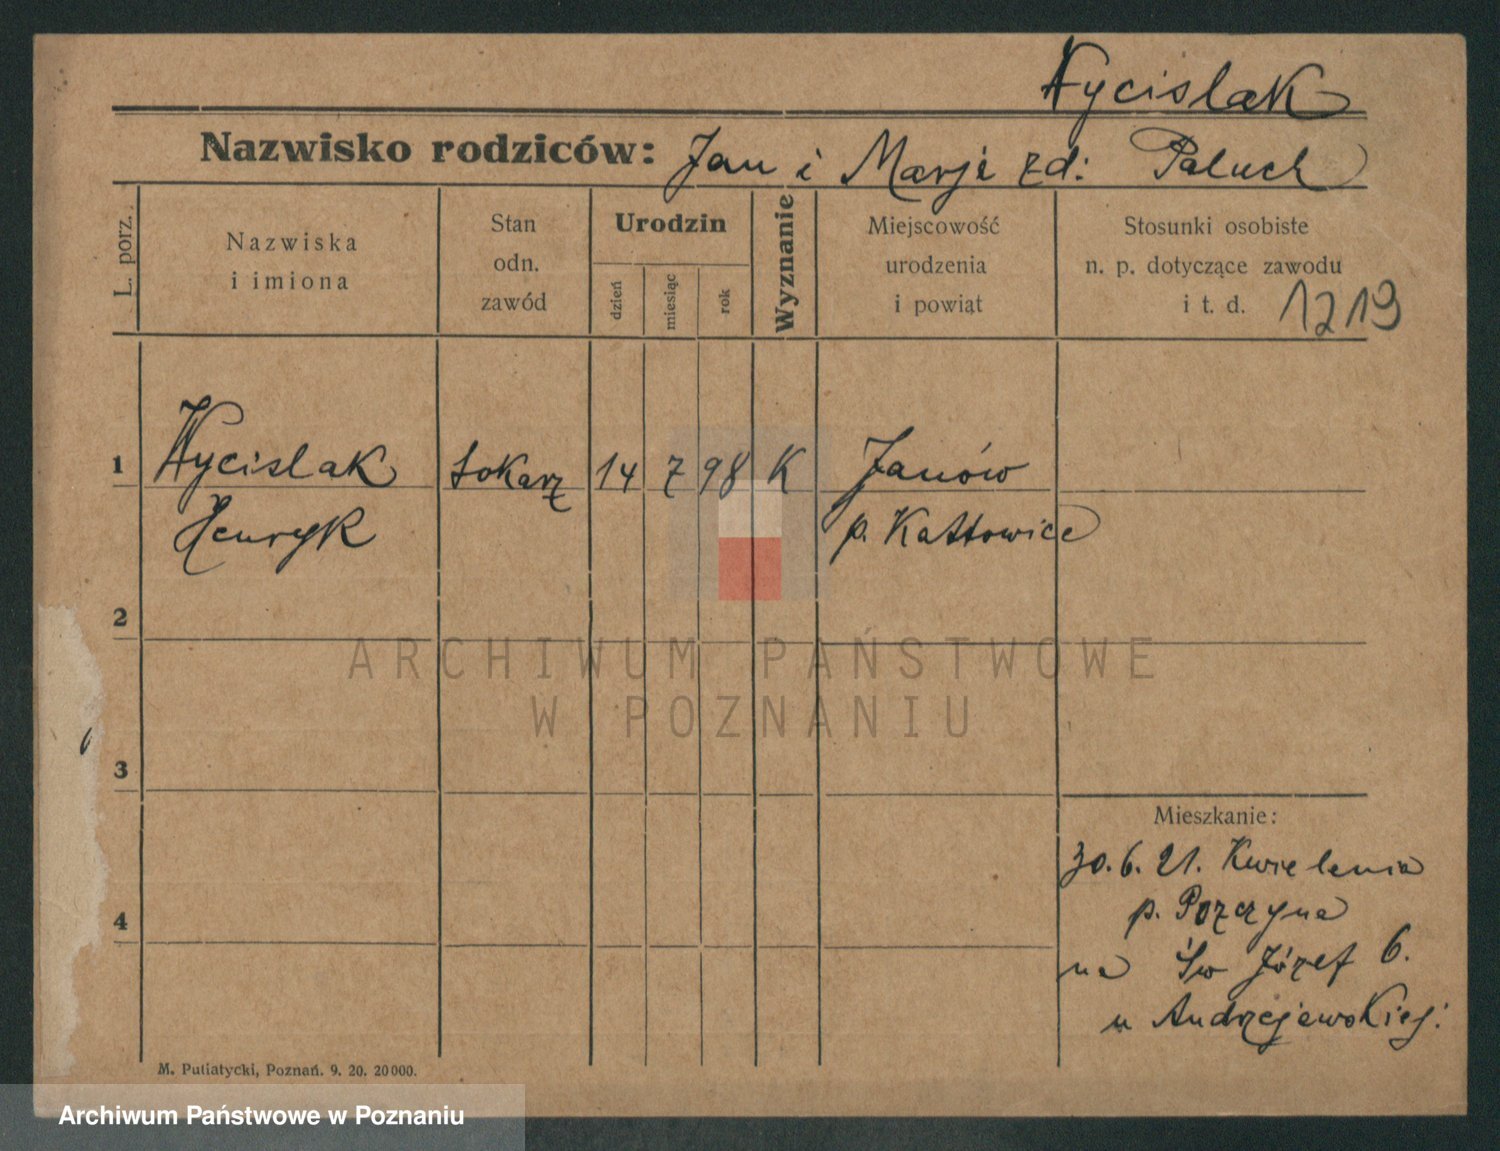 Wycislak
Nazwisko rodziców: Jan i Marji zd: Paluch
L. porz.
Nazwiska
i imiona
Stan
odn.
zawód
Urodzin
dzień
miesiąc
rok
Wyznanie
Miejscowość
urodzenia
i powiąt
Stosunki osobiste
n. p. dotyczące zawodu
i t. d. 1219
1 Wycislak tokarz 14 7 98 K Janów
Henryk p. Kattowice
2
3
4
Mieszkanie:
30. 6. 21.
p.
na Św Józef 6.
u Andrzejewskiej.
M. Putiatycki, Poznań. 9. 20. 20000.
ARCHIWUM PAŃSTWOWE
W POZNANIU
Archiwum Państwowe w Poznaniu